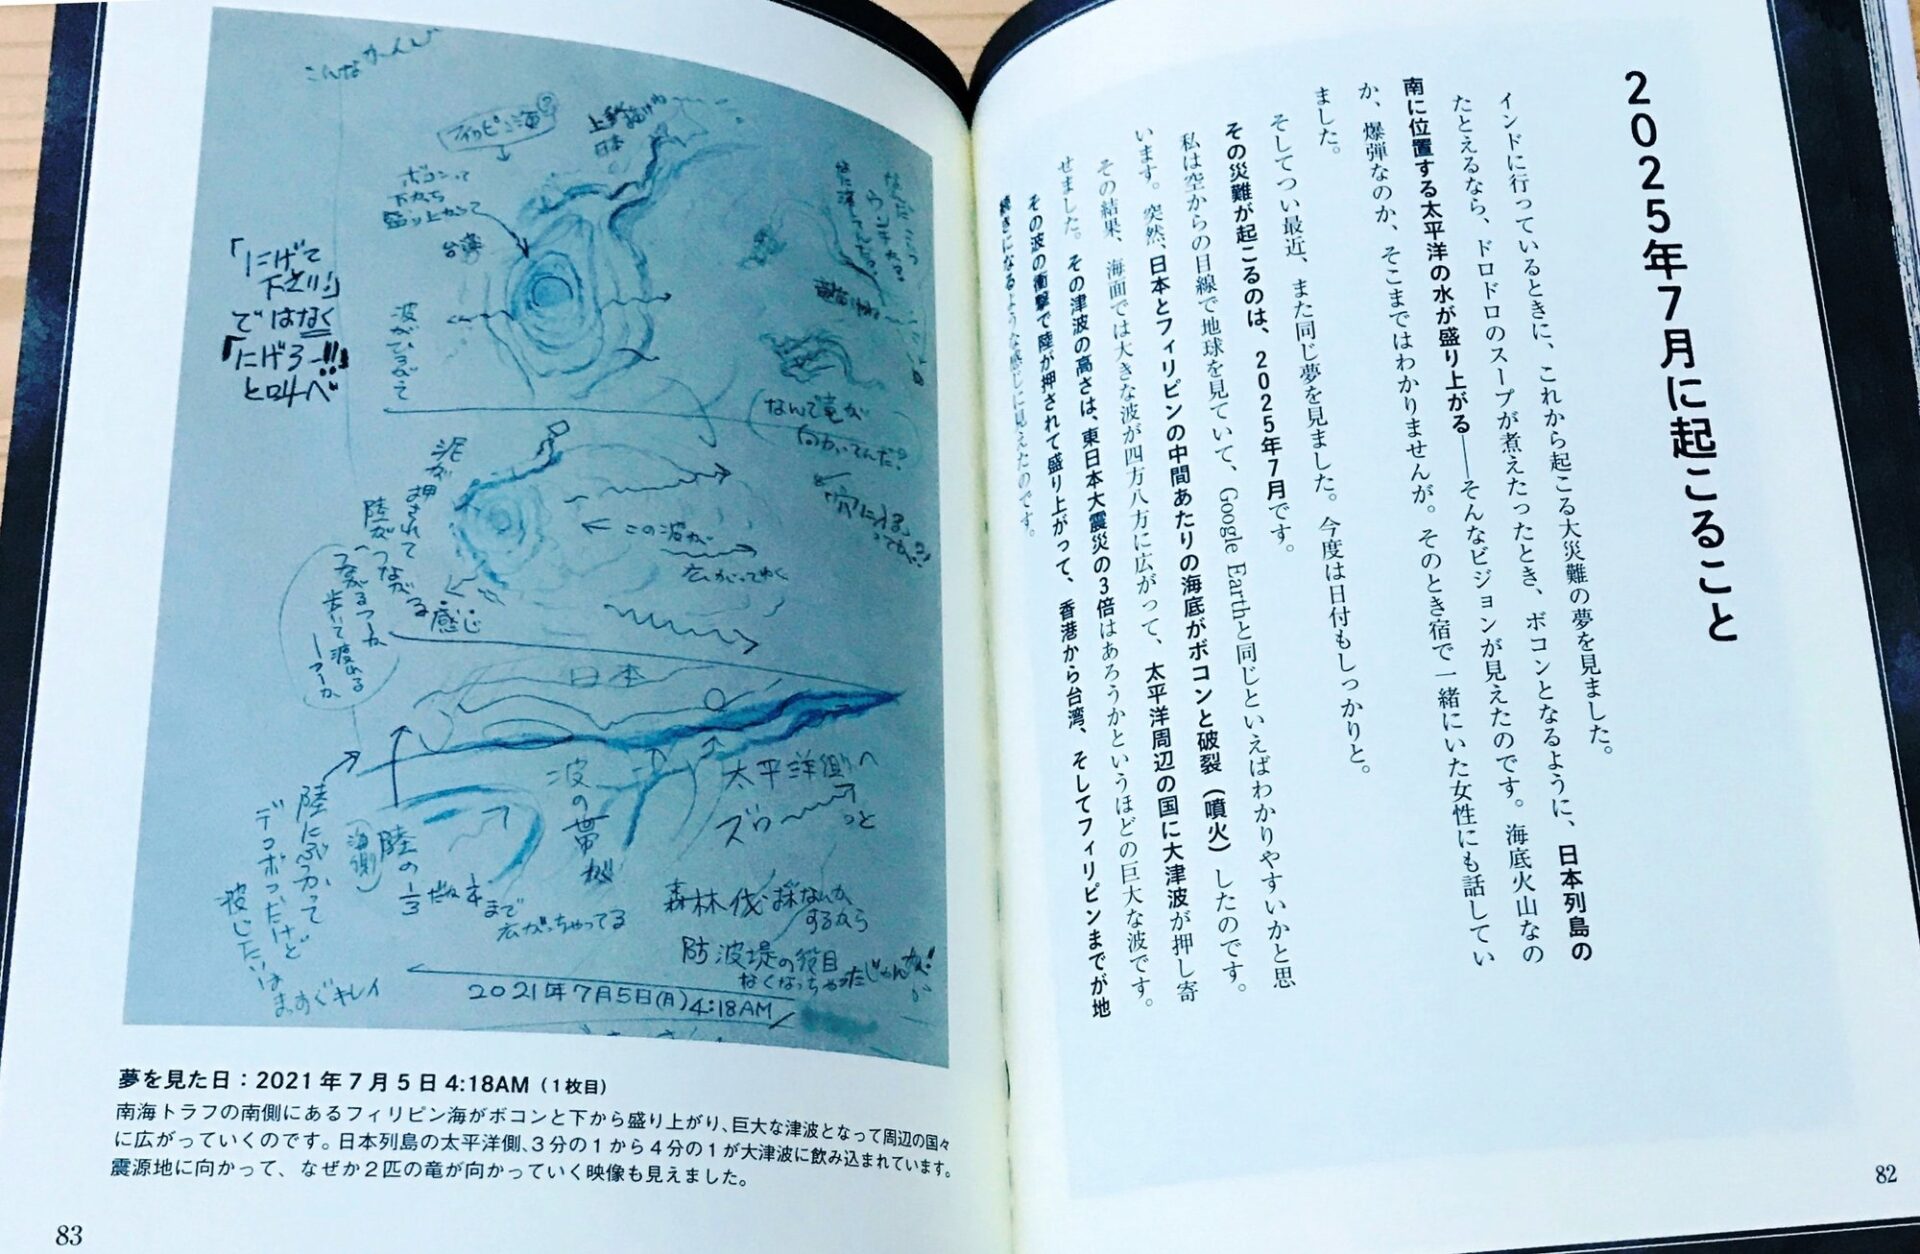 2025年7月に起こること
インドに行っているときに、これから起こる大災難の夢を見ました。
たとえるなら、ドロドロのスープが煮えたったとき、ボコンとなるように、日本列島の
南に位置する太平洋の水が盛り上がる――そんなビジョンが見えたのです。海底火山なの
か、爆弾なのか、そこまではわかりませんが。そのとき宿で一緒にいた女性にも話してい
ました。
そしてつい最近、また同じ夢を見ました。今度は日付もしっかりと。
その災難が起こるのは、2025年7月です。
私は空からの目線で地球を見ていて、Google Earthと同じといえばわかりやすいかと思
います。突然、日本とフィリピンの中間あたりの海底がボコンと破裂（噴火）したのです。
その結果、海面では大きな波が四方八方に広がって、太平洋周辺の国に大津波が押し寄
せました。その津波の高さは、東日本大震災の3倍はあろうかというほどの巨大な波です。
その波の衝撃で陸が押されて盛り上がって、香港から台湾、そしてフィリピンまでが地
続きになるような感じに見えたのです。
82
こんなかーんじ
フィリピン海?
日本
ボコンって
下から
盛り上がって
台湾
波がひろがって
「にげて
下さい」
ではなく
「にげろー!!」
と叫べ
なんで竜が
向かってんだ?
泥が押されて
陸がつながる感じ
この波が
広がってゆく
日本
太平洋側へ
ズゥーっと
波の帯が
陸にぶつかって
デコボコだけど
彼じたいは
まっすぐキレイ
陸の
(海側)
1/3だね1/4まで
広がっちゃってる
森林伐採なんか
するから
防波堤の役目
なくなっちゃったじゃんか!!
2021年7月5日(月)4:18AM
夢を見た日：2021年7月5日4:18AM（1枚目）
南海トラフの南側にあるフィリピン海がボコンと下から盛り上がり、巨大な津波となって周辺の国々
に広がっていくのです。日本列島の太平洋側、3分の1から4分の1が大津波に飲み込まれています。
震源地に向かって、なぜか2匹の竜が向かっていく映像も見えました。
83